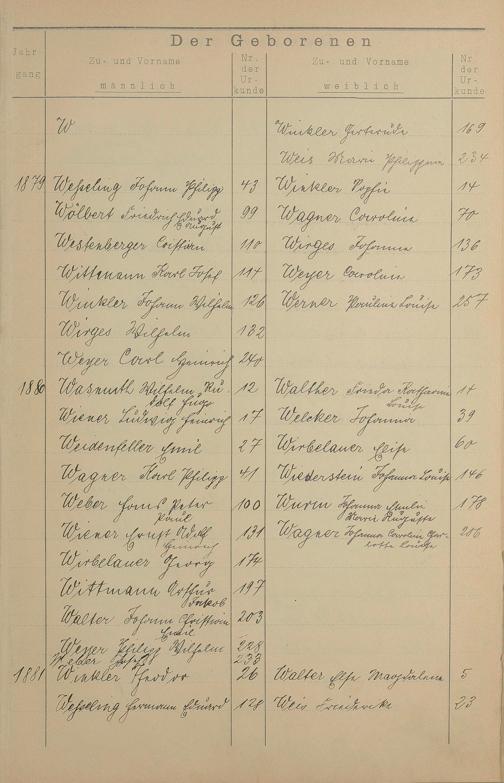 Der Geborenen
Jahr-
gang
Zu- und Vorname
männlich
Nr.
der
Ur-
kunde
Zu- und Vorname
weiblich
Nr.
der
Ur-
kunde
W Winkler Gertrude 169
Weis Marie Philippine 234
1879 Wesseling Johann Philipp 43 Winkler Sophie 14
Wölbert Friedrich Eduard 99 Wagner Caroline 70
August
Westenberger Christian 110 Wirges Johanna 136
Wittmann Karl Josef 114 Weyer Caroline 173
Winkler Johann Wilhelm 126 Werner Pauline Louise 257
Wirges Wilhelm 132
Weyer Carl Heinrich 240
1880 Wasmuth Wilhelm Ru- 12 Walther Frieda Katharina 11
dolf Hugo Louise
Wiener Ludwig Heinrich 17 Welcker Johanna 39
Weidenfeller Emil 27 Wirbelauer Elise 60
Wagner Karl Philipp 41 Wiederstein Johanna Louise 146
Weber Hans Peter 100 Wurm Johanna Emilie 178
Paul Marie Auguste
Wiener Ernst Adolf 131 Wagner Johanna Caroline Char- 206
Heinrich lotte Louise
Wirbelauer Georg 174
Wittmann Arthur 197
Jakob
Walter Johann Christian 203
Emil
Weyer Philipp Wilhelm 228
Josef 233
1881 Winkler Theodor 26 Walter Else Magdalene 5
Wesseling Hermann Eduard 128 Weis Friedericke 23